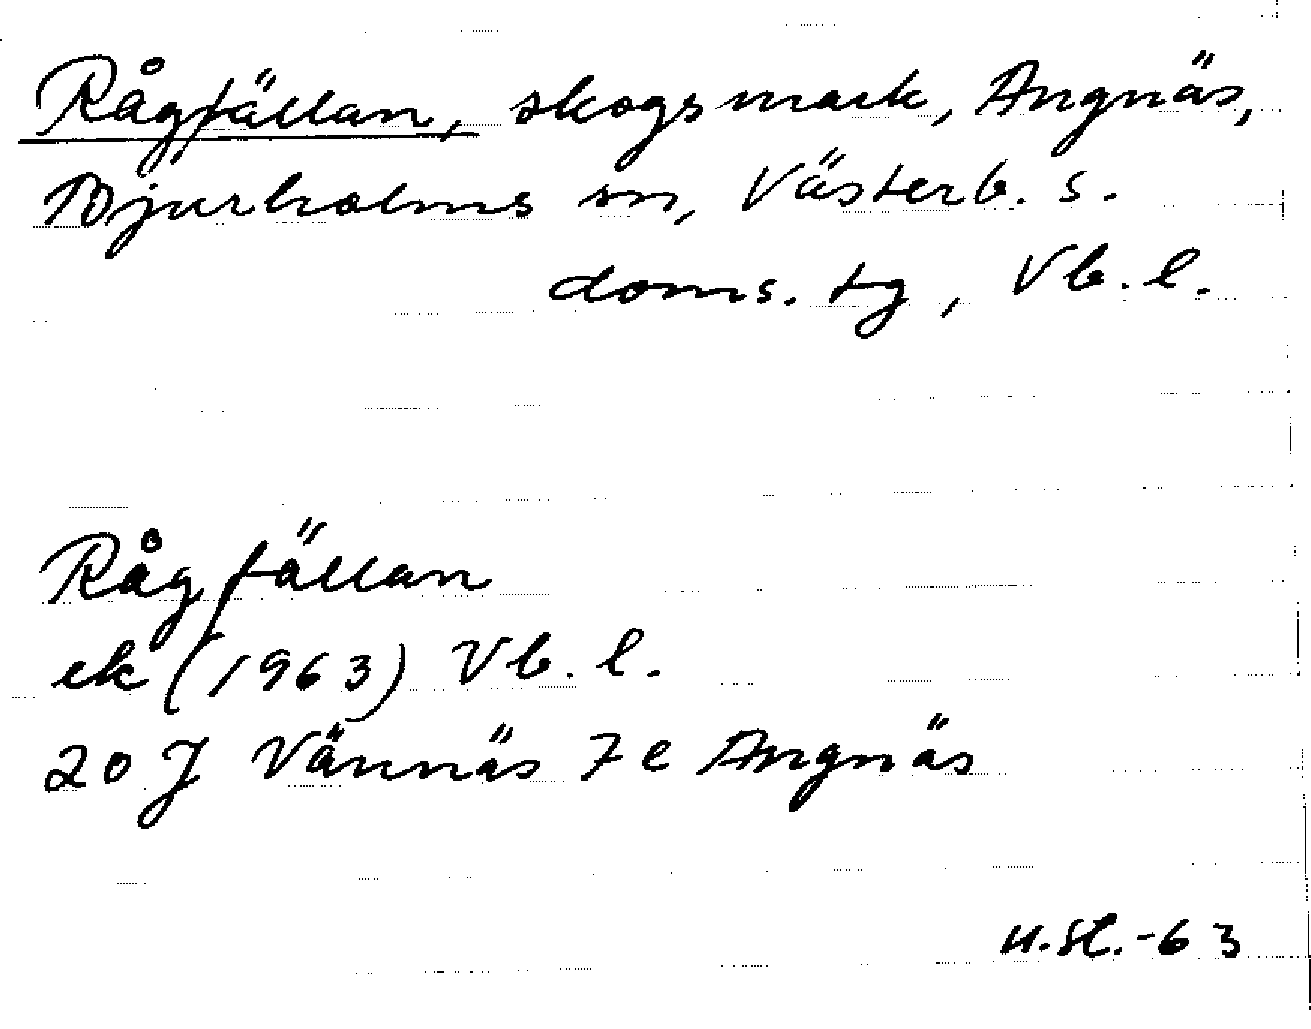 Rågfällan, skogsmark, Angnäs,
Bjurholms sn, Västerb. s.
doms. tg, Vb. l.
Rågfällan
ek (1963) Vb. l.
20 J Vännäs 7 e Angnäs
-63